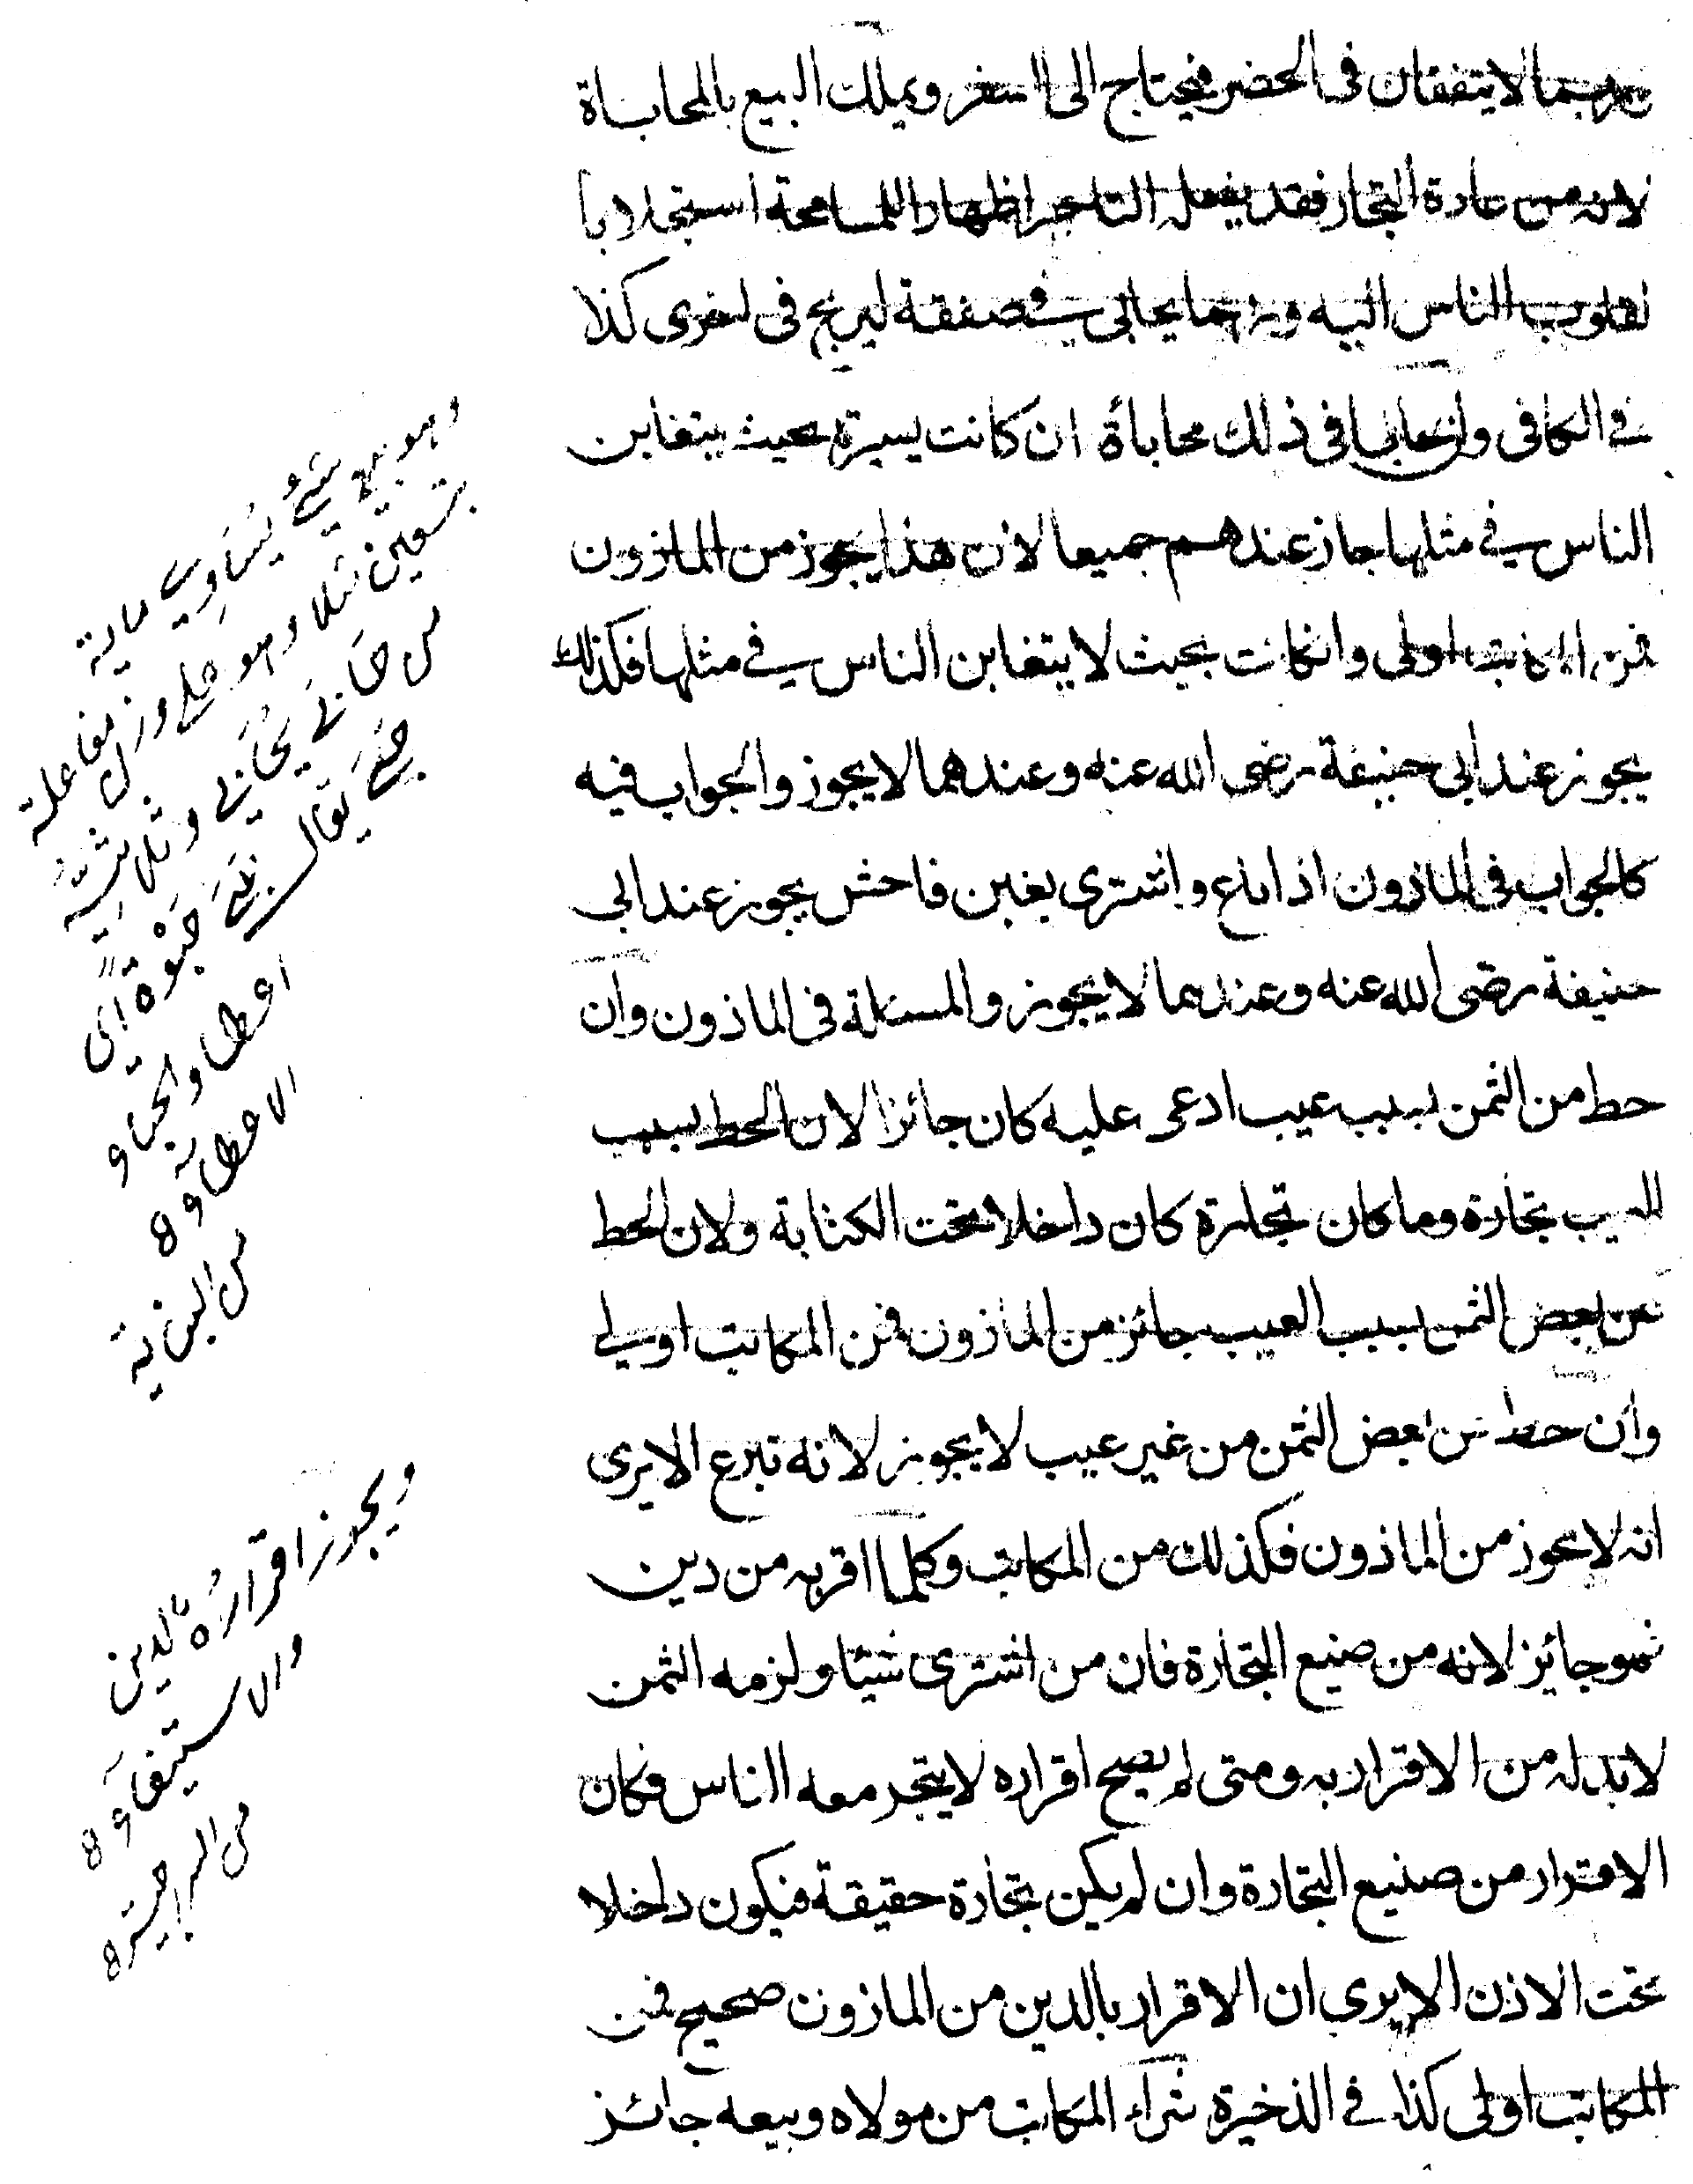 وربما لا يتفقان فى الحضر فيحتاج الى السفر ويملك البيع بالمحاباة
لانه من عادة التجار فقد يفعله التاجر اظهارا للمسامحة استجلابا
لقلوب الناس اليه وربما يحابى فى صفقة ليربح فى اخرى كذا
فى الكافى وان حابا فى ذلك محاباة ان كانت يسيرة بحيث يتغابن
الناس فى مثلها جاز عندهم جميعا لان هذا يجوز من الماذون
فمن المكاتب اولى وانكانت بحيث لا يتغابن الناس فى مثلها فكذلك
يجوز عند ابى حنيفة رضى الله عنه وعندهما لا يجوز والجواب فيه
كالجواب فى الماذون اذا باع واشترى بغبن فاحش يجوز عند ابى
حنيفة رضى الله عنه وعندهما لا يجوز والمسئلة فى الماذون وان
حط من الثمن بسبب عيب ادعى عليه كان جائزا لان الحط بسبب
العيب تجارة وما كان تجارة كان داخلا تحت الكتابة ولان الحط
عن بعض الثمن بسبب العيب جائز من الماذون فمن المكاتب اولى
وان حط عن بعض الثمن من غير عيب لا يجوز لانه تبرع الا يرى
انه لا يجوز من الماذون فكذلك من المكاتب وكلما اقر به من دين
فهو جائز لانه من صنيع التجارة فان من اشترى شيئا ولزمه الثمن
لا بد له من الاقرار به ومتى لم يصح اقراره لا يتجر معه الناس فكان
الاقرار من صنيع التجارة وان لم يكن تجارة حقيقة فيكون داخلا
تحت الاذن الا يرى ان الاقرار بالدين من الماذون صحيح فمن
المكاتب اولى كذا فى الذخيرة شراء المكاتب من مولاه وبيعه جائز
وهو بيع شئ يساوى مائة
بتسعين مثلا وهو على وزن مفاعلة
من حابى يحابى وثلاثيه
حبى يقال حبوة اى
اعطا والحباء
الاعطاء
من البناية
ويجوز اقراره بالدين
والاستيفاء
من السراجية